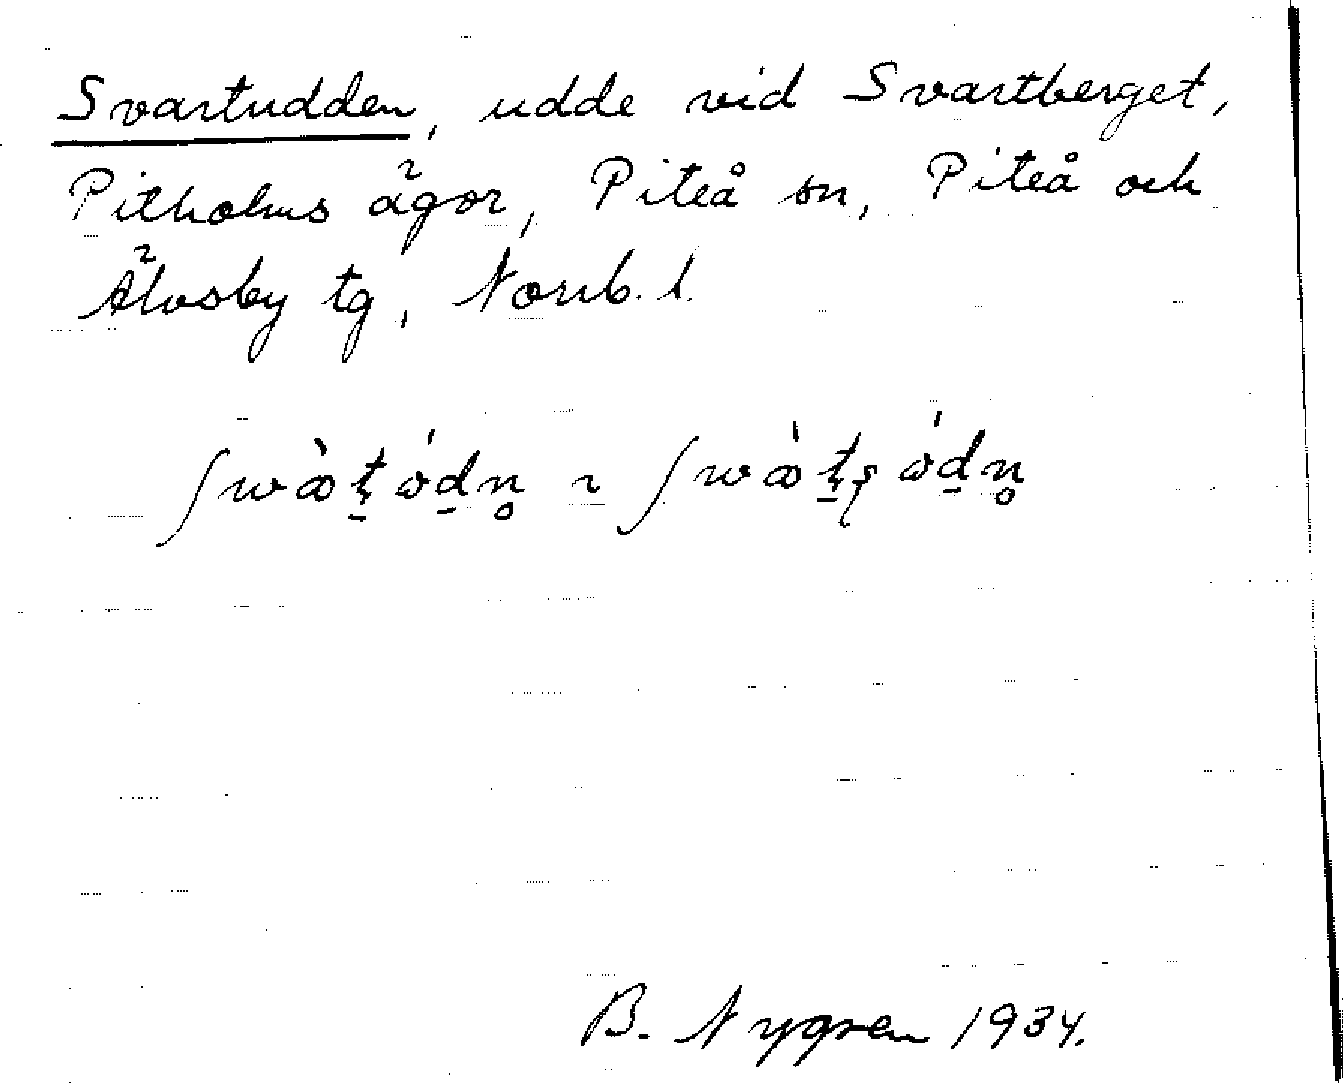 Svartudden, udde vid Svartberget,
Pitholms ägor, Piteå sn, Piteå och
Älvsby tg, Norrb. l.
B. Nygren 1934.